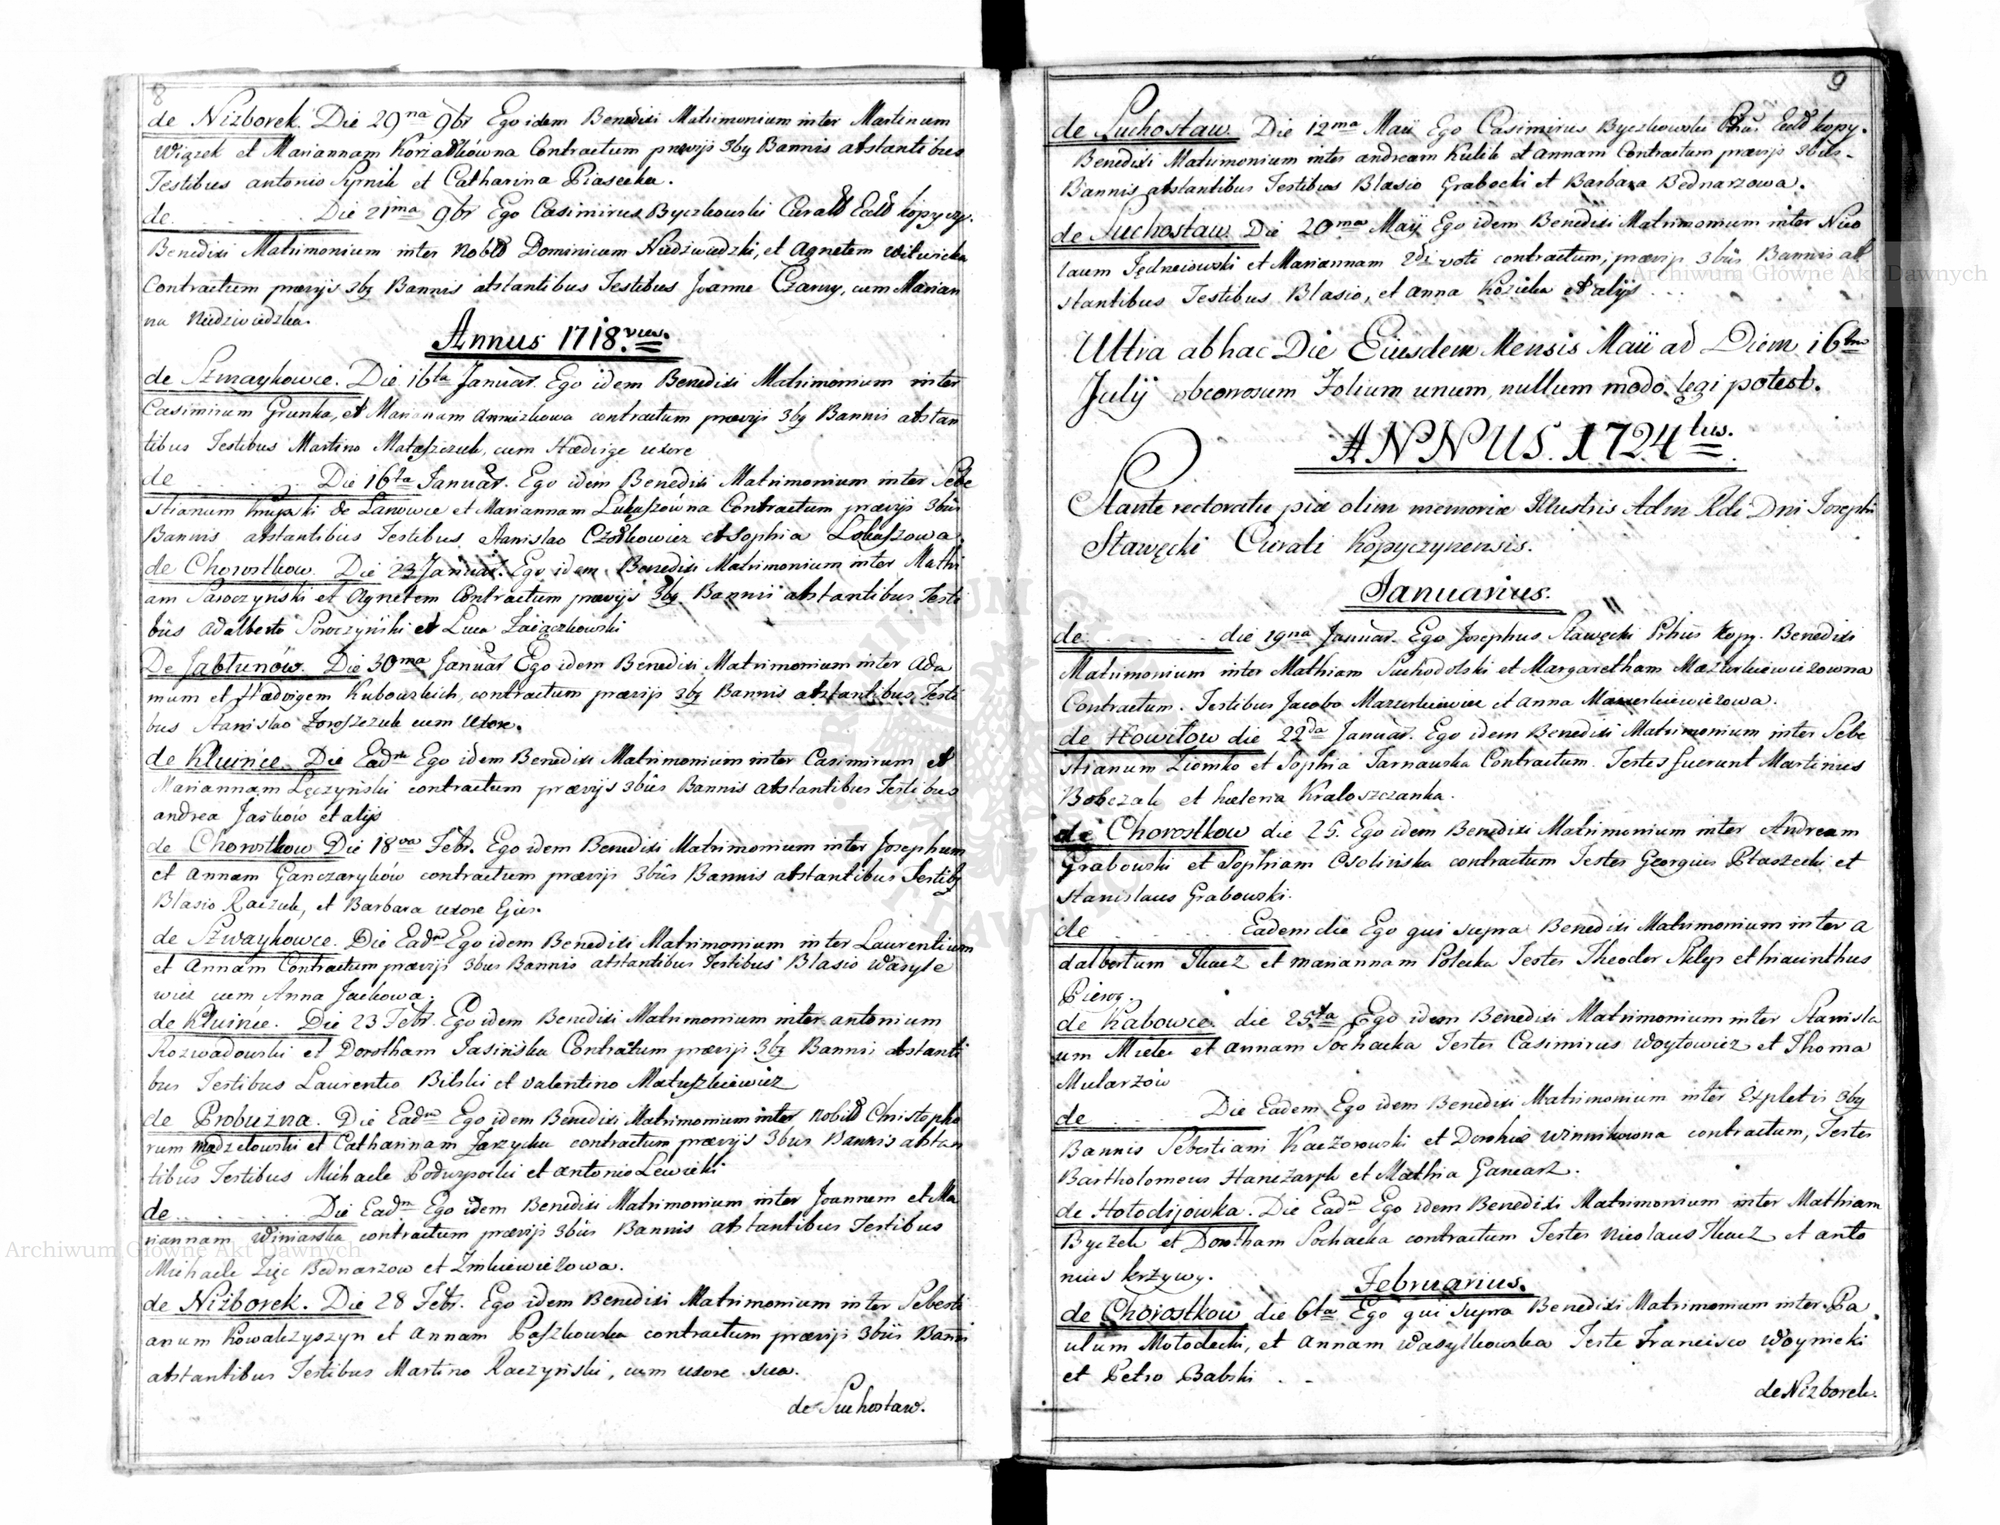 8
de Nizborek. Die 29na 9br Ego idem Benedixi Matrimonium inter Martinum
Wiązek et Mariannam Korzadkówna Contractum prævijs 3bg Bannis abstantibus
Testibus antonio Syrnik et Catharina Piasecka.
de . . . . . . . Die 21ma 9br Ego Casimirus Byczkowski Curatus Eccl kopyczy.
Benedixi Matrimonium inter Nobld Dominicum Niedzwiedzki, et Agnetem Witwicka
Contractum prævijs 3bg Bannis abstantibus Testibus Joanne Czarny, cum Marian
na Niedzwiedzka.
Annus 1718vus.
de Szwaykowce. Die 16ta Januar. Ego idem Benedixi Matrimonium inter
Casimirum Grunka, et Mariannam contractum prævijs 3bg Bannis abstan
tibus Testibus Martino Mataszczuk, cum Hædvige uxore
de . . . . . . . Die 16ta Januar. Ego idem Benedixi Matrimonium inter Seba
stianum Krupski de Lanowce et Mariannam Lukaszówna Contractum prævijs 3bus
Bannis abstantibus Testibus Stanislao et Sophia Lokaszowa.
de Chorostkow. Die 23 Januar. Ego idem Benedixi Matrimonium inter Mathi
am Saroczynski et Agnetem Contractum prævijs 3bg Bannis abstantibus Testi
bus Adalberto Soroczyński et Luca Zaiączkowski
De Jabłunów. Die 30ma Januar Ego idem Benedixi Matrimonium inter Ada
mum et Hædvigem Kubowskich, contractum prævijs 3bg Bannis abstantibus, Testi
bus Stanislao Zoroszczuk cum Uxore.
de Kluińce. Die Eade Ego idem Benedixi Matrimonium inter Casimirum et
Mariannam Lęczyński contractum prævijs 3bus Bannis abstantibus Testibus
andrea Jaśków et alijs
de Chorostkow Die 18va Febr. Ego idem Benedixi Matrimonium inter Josephum
et Annam Ganczaryków contractum prævijs 3bus Bannis abstantibus Testibg
Blasio Raczuk, et Barbara uxore Ejus.
de Szwaykowce. Die Eadem Ego idem Benedixi Matrimonium inter Laurentium
et Annam Contractum prævijs 3bus Bannis abstantibus Testibus Blasio Wasyle
wicz cum Anna Jackowa.
de Kluińce. Die 23 Febr. Ego idem Benedixi Matrimonium inter antonium
Rozwadowski et Dorotham Jasińska Contractum prævijs 3bg Bannis abstanti
bus Testibus Laurentio Bilski et Valentino Matuszkiewicz
de Probużna. Die Eadem Ego idem Benedixi Matrimonium inter Nobild Christopho
rum Madzelowski et Catharinam Jarzycka contractum prævijs 3bus Bannis abstan
tibus Testibus Michaele Podwysocki et antonio Lewicki
de . . . . . . . Die Eadem Ego idem Benedixi Matrimonium inter Joannem et Ma
riannam Winiarska contractum prævijs 3bus Bannis abstantibus Testibus
Michaele Zięc Bednarzow et Zinkiewiczowa.
de Niżborek. Die 28 Febr. Ego idem Benedixi Matrimonium inter Sebasti
anum Kowalczyszyn et Annam Paszkowska contractum prævijs 3bus Banni
abstantibus Testibus Martino Raczyński, cum uxore sua.
de Suchostaw.
9
de Suchostaw. Die 12ma Maii Ego Casimirus Byczkowski Eccld kopy.
Benedixi Matrimonium inter andream Kulik et annam Contractum prævijs 3bus
Bannis abstantibus Testibus Blasio Grabocki et Barbara Bednarzowa.
de Suchostaw. Die 20ma Maij Ego idem Benedixi Matrimonium inter Nico
laum Jędneiowski et Mariannam 2di voti contractum, prævijs 3bus Bannis ab
stantibus Testibus Blasio, et Anna Kozicka et alijs . . .
Ultra ab hac Die Eiusdem Mensis Maii ad Diem 16tam
Julij obcorosum Folium unum, nullum modo legi potest.
ANNUS. 1724tus.
Stante rectoratu piæ olim memoriæ Illustris Adm Rdi Dni Josephi
Stawęcki Curati Kopyczynensis.
Januarius.
de . . . . . . . die 19na Januar. Ego Josephus Stawęcki Kopy. Benedixi
Matrimonium inter Mathiam Suchodolski et Margaretham Mazurkiewiczowna
Contractum. Testibus Jacobo Mazurkiewicz et Anna Mazurkiewiczowa.
de Howiłow die 22da Januar. Ego idem Benedixi Matrimonium inter Seba
stianum Ziomko et Sophia Tarnawska Contractum. Testes fuerunt Martinus
Bobczak et hælena Kraloszczanka.
de Chorostkow die 25. Ego idem Benedixi Matrimonium inter Andream
Grabowski et Sophiam Osolińska contractum Testes Georgius Ptaszecki et
Stanislaus Grabowski.
de . . . . . . . Eadem die Ego qui supra Benedixi Matrimonium inter A
dalbertum Tkacz et mariannam Polecka Testes Theodor Sklyp et hiacinthus
Pierog.
de Kabowce. die 25ta Ego idem Benedixi Matrimonium inter Stanisla
um Mielec et annam Sochacka Testes Casimirus Woytowicz et Thoma
Mularzów
de . . . . . . . Die Eadem Ego idem Benedixi Matrimonium inter Expletis 3bg
Bannis Sebestiani Kaczorowski et Winnikowna contractum, Testes
Bartholomeus Hanczaryk et Mathia Gancarz.
de Hołodijowka. Die Eadem Ego idem Benedixi Matrimonium inter Mathiam
Byczek et Dorotham Sochacka contractum Testes Nicolaus Tkacz et anto
nius krzywy.
Februarius.
de Chorostkow die 6ta Ego qui supra Benedixi Matrimonium inter Pa
ulum Mołodecki, et Annam Wasylkowska Teste Francisco Woynicki
et Petro Babski . .
de Nizborek.
Archiwum Główne Akt Dawnych
Archiwum Główne Akt Dawnych